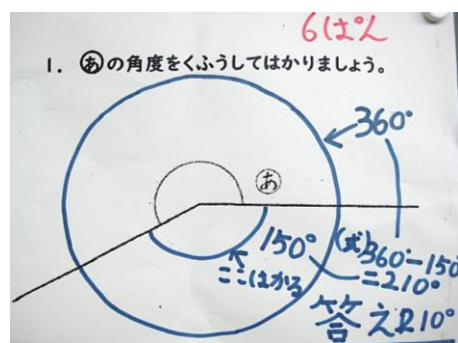 6ぱん
1. あの角度をくふうしてはかりましょう。
360°
あ
150°
ここはかる
(式)360°-150°
=210°
答え210°